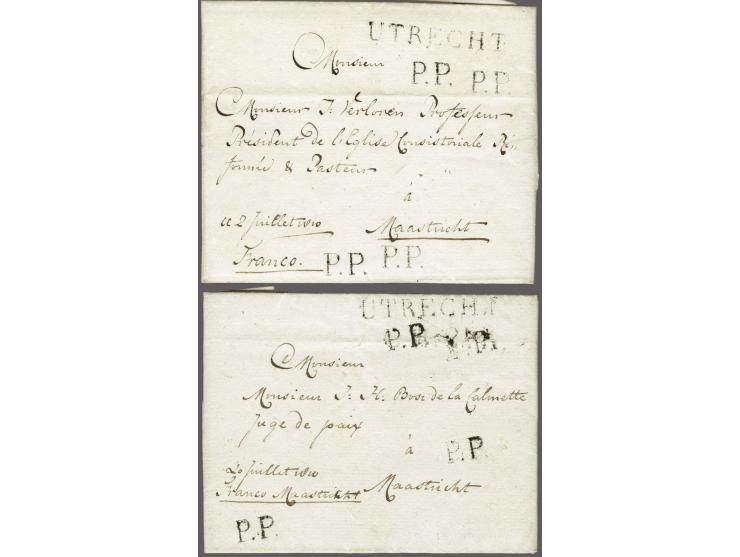 UTRECHT
P.P. P.P.
Monsieur
Monsieur J: Verloren Professeur
Président de l'Eglise Consistoriale Ré-
formée & Pasteur
á
ce 2 Juillet 1810 Maastricht
Franco. P.P. P.P.
UTRECHT
P.P. P.P.
Monsieur
Monsieur J: H: Bosc de la Calmette
Juge de paix
á P.P.
20 Juillet 1810
Franco Maastricht Maastricht
P.P.